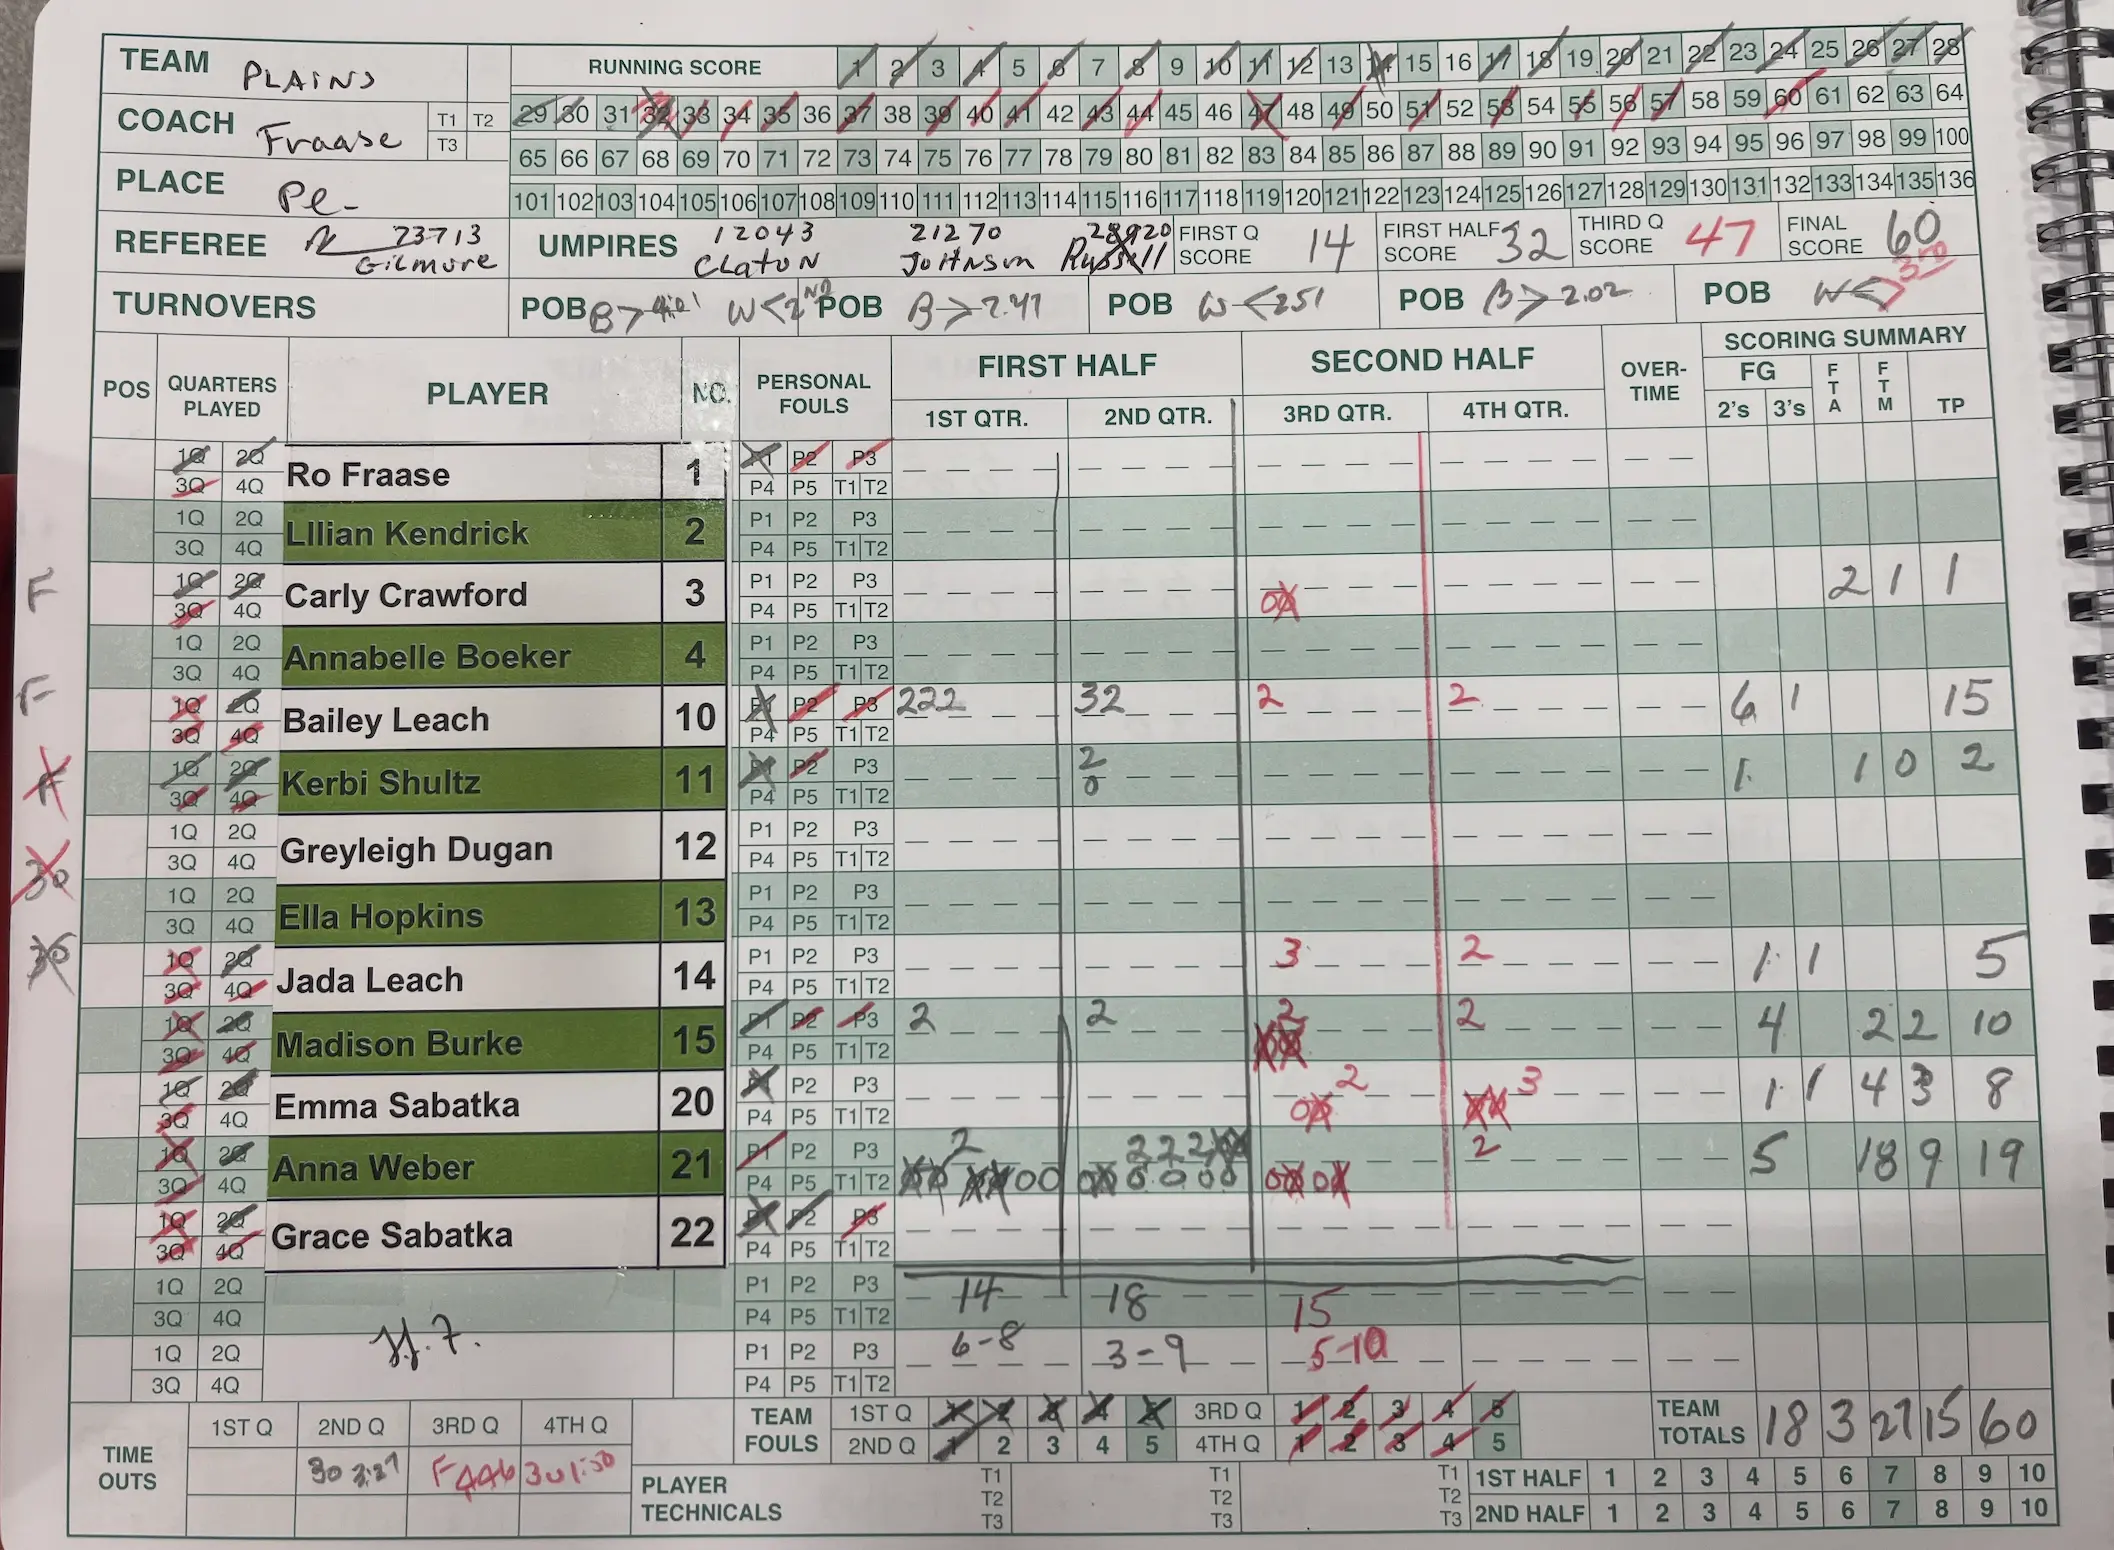 TEAM PLAINS
RUNNING SCORE 1 2 3 4 5 6 7 8 9 10 11 12 13 14 15 16 17 18 19 20 21 22 23 24 25 26 27 28
COACH Fraase T1 T2 T3
29 30 31 32 33 34 35 36 37 38 39 40 41 42 43 44 45 46 47 48 49 50 51 52 53 54 55 56 57 58 59 60 61 62 63 64
65 66 67 68 69 70 71 72 73 74 75 76 77 78 79 80 81 82 83 84 85 86 87 88 89 90 91 92 93 94 95 96 97 98 99 100
PLACE Pl-
101 102 103 104 105 106 107 108 109 110 111 112 113 114 115 116 117 118 119 120 121 122 123 124 125 126 127 128 129 130 131 132 133 134 135 136
REFEREE R 73713 Gilmore
UMPIRES 12043 Claton 21270 Johnson 28920 Russell
FIRST Q SCORE 14 FIRST HALF SCORE 32 THIRD Q SCORE 47 FINAL SCORE 60
TURNOVERS POB B> W<2ND POB B>2.47 POB W<251 POB B>2.02 POB W< 3rd
POS QUARTERS PLAYED PLAYER NO. PERSONAL FOULS FIRST HALF SECOND HALF OVER-TIME SCORING SUMMARY
1ST QTR. 2ND QTR. 3RD QTR. 4TH QTR. FG 2's 3's FTA FTM TP
1Q 2Q 3Q 4Q Ro Fraase 1 P1 P2 P3 P4 P5 T1 T2
1Q 2Q 3Q 4Q LIlian Kendrick 2 P1 P2 P3 P4 P5 T1 T2
F 1Q 2Q 3Q 4Q Carly Crawford 3 P1 P2 P3 P4 P5 T1 T2 0X 2 1 1
1Q 2Q 3Q 4Q Annabelle Boeker 4 P1 P2 P3 P4 P5 T1 T2
F 1Q 2Q 3Q 4Q Bailey Leach 10 P1 P2 P3 P4 P5 T1 T2 222 32 2 2 6 1 15
F 1Q 2Q 3Q 4Q Kerbi Shultz 11 P1 P2 P3 P4 P5 T1 T2 2 0 1 1 0 2
30 1Q 2Q 3Q 4Q Greyleigh Dugan 12 P1 P2 P3 P4 P5 T1 T2
30 1Q 2Q 3Q 4Q Ella Hopkins 13 P1 P2 P3 P4 P5 T1 T2
1Q 2Q 3Q 4Q Jada Leach 14 P1 P2 P3 P4 P5 T1 T2 3 2 1 1 5
1Q 2Q 3Q 4Q Madison Burke 15 P1 P2 P3 P4 P5 T1 T2 2 2 2 XX 2 4 2 2 10
1Q 2Q 3Q 4Q Emma Sabatka 20 P1 P2 P3 P4 P5 T1 T2 0X 2 XX 3 1 1 4 3 8
1Q 2Q 3Q 4Q Anna Weber 21 P1 P2 P3 P4 P5 T1 T2 2 XX XX 00 222 XX 0X 0 0 00 0X 0X 2 5 18 9 19
1Q 2Q 3Q 4Q Grace Sabatka 22 P1 P2 P3 P4 P5 T1 T2
1Q 2Q 3Q 4Q P1 P2 P3 P4 P5 T1 T2 14 18 15
1Q 2Q 3Q 4Q P1 P2 P3 P4 P5 T1 T2 6-8 3-9 5-10
TIME OUTS 1ST Q 2ND Q 3RD Q 4TH Q
30 2:27 F 446 30 1:50
TEAM FOULS 1ST Q 1 2 3 4 5 3RD Q 1 2 3 4 5
2ND Q 1 2 3 4 5 4TH Q 1 2 3 4 5
TEAM TOTALS 18 3 27 15 60
PLAYER TECHNICALS T1 T2 T3 T1 T2 T3 T1 T2 T3
1ST HALF 1 2 3 4 5 6 7 8 9 10
2ND HALF 1 2 3 4 5 6 7 8 9 10